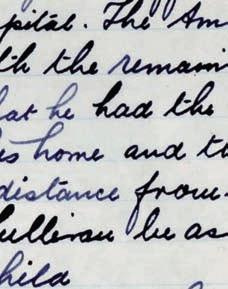 pital. The Am
th the remain
hat he had the
es home and t
distance from
ullivan be as
hild